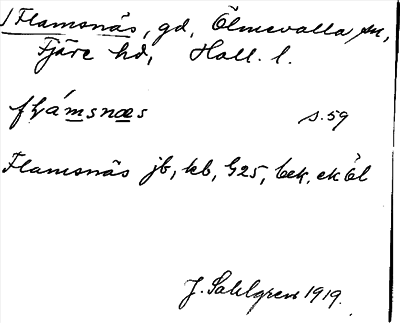 /Flamsnäs, gd, Ölmevalla sn,
Fjäre hd, Hall. l.
s. 59
Flamsnäs jb, kb, G25, bek. ek Öl
J. Sahlgren 1919.